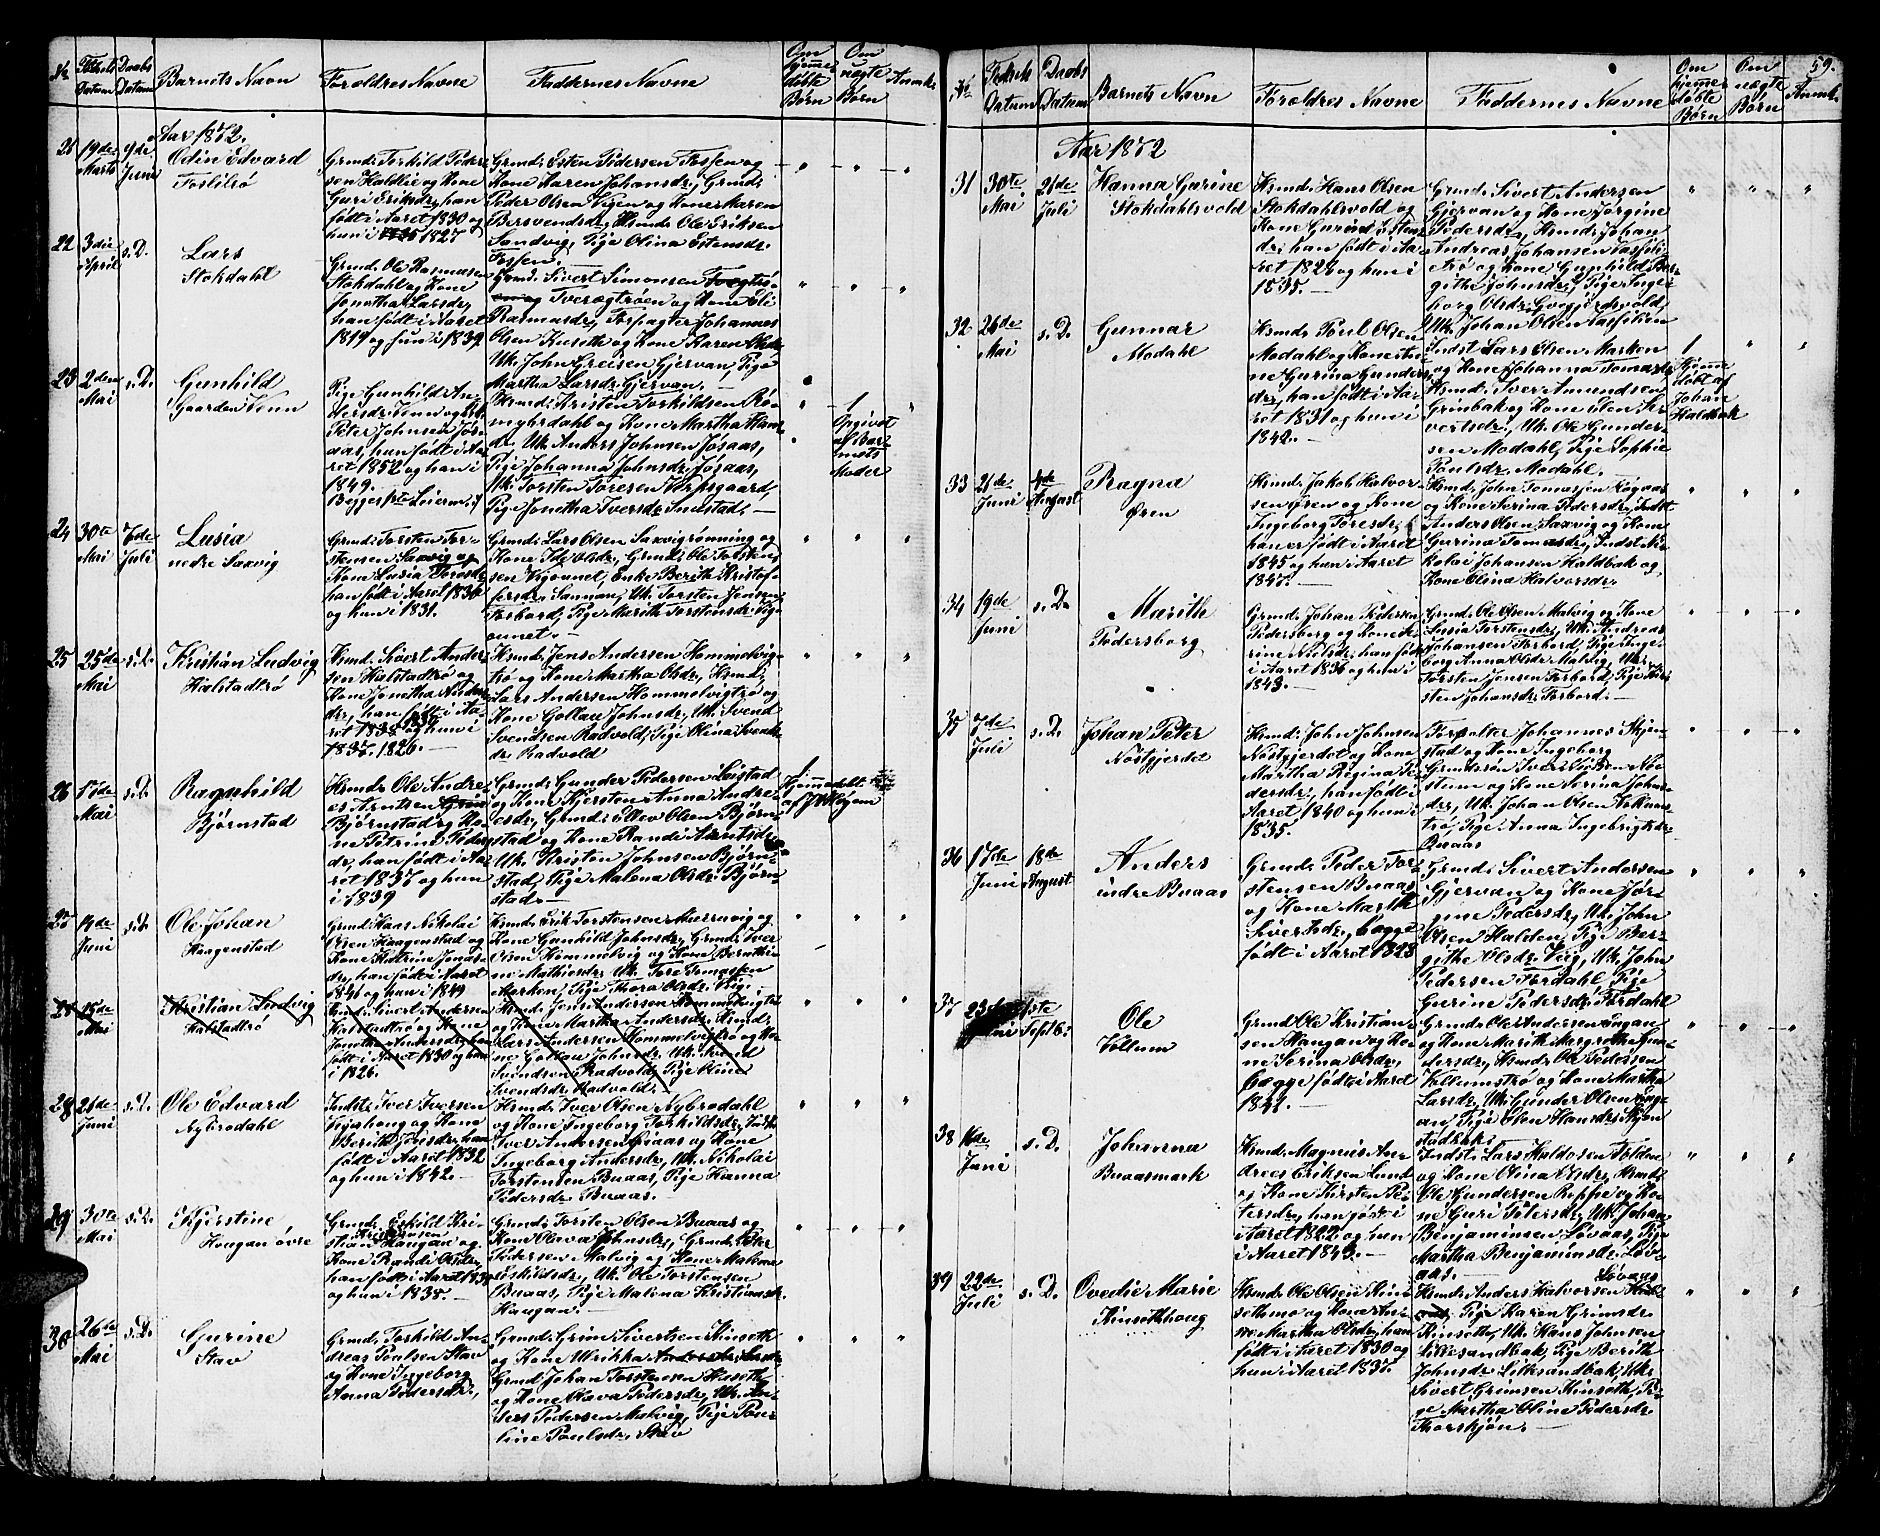 No
Fødsels Datum
Daabs Datum
Barnets Navn
Forældres Navne
Faddernes Navne
Om hjemmedøbte Børn
Om uægte Børn
Anmk.
Aar 1872.
21
19de Marts
9de Juni
Odin Edvard
Foslitrø
Grmd. Torkild Peder-
sen Haldlie og Kone
Guri Eriksdr, han
født i Aaret 1830 og
hun i 1827
Grmd. Esten Pedersen Fossen og
Kone Karen Johansdr, Grmd.
Peder Olsen Vigen og Kone Maren
Bersvendsdr, Hsmd. Ole Eriksen
Sandvig, Pige Olina Estensdr
Fossen.
22
3die April
s. D.
Lars
Stokdahl
Grmd. Ole Rasmussen
Stokdahl og Kone
Jonetha Larsdr,
han født i Aaret
1819 og hun i 1839
Grmd. Sivert Simonsen
Tveregtrøen og Kone Eli
Rasmusdr, Forpagter Johannes
Olsen Kuseth og Kone Karen Olsdr
Uk. John Greisen Gjervan, Pige
Martha Larsdr Gjervan.
23
2den Mai
s. D.
Gunhild
Gaarden Venn
Pige Gunhild An-
dersdr Venn og Uk.
Peter Johnsen Jøs-
aas, han født i Aa-
ret 1852 og hun i
1849.
Begges 1ste Leierm.
Hsmd. Kristen Torkildsen Rø-
myhrdahl og Kone Martha Hans-
dr. Uk. Anders Johnsen Jøsaas,
Pige Johanna Johnsdr, Jøsaas,
Uk. Torsten Toresen Verpsgaard,
Pige Jonetha Iversdr Indstad.
1
Opgivet af Barnets Moder
24
30te Mai
7de Juli
Lusia
nedre Saxvig
Grmd. Torsten Tor-
stensen Saxvig og
Kone Lusia Toresdr
han født i Aaret 1830
og hun i 1831.
Grmd. Lars Olsen Saxvigrønning og
Kone Ide Olsdr, Grmd. Ole Torsten-
sen Vigounet, Enke Berith Kristof-
fersdr. Sannan, Uk. Torsten Jensen
Forbord, Pige Marith Torstensdr Vig-
ounet.
25
25de Mai
s. D.
Kristian Ludvig
Halstadtrø
Hsmd. Sivert Ander-
sen Halstadtrø og
Kone Jonetha Anders-
dr, han født i Aa-
ret 1830 og hun i
1826.
Hsmd. Jens Andersen Hommelvig-
trø og Kone Martha Olsdr, Hsmd.
Lars Andersen Hommelvigtrø og
Kone Gollau Johnsdr, Uk. Svend
Svendsen Radvold, Pige Olina Svends-
dr Radvold
26
15de Mai
s. D.
Ragnhild
Bjørnstad
Hsmd. Ole Andre-
es Arntsen
Bjørnstad og Ko-
ne Petrine Peders-
dr, han født i Aa-
ret 1837 og hun
i 1839
Grmd. Gunder Pedersen Leistad
og Kone Kjersten Anna Andre-
esdr, Grmd. Ellev Olsen Bjørn-
stad og Kone Randi Arntsdr,
Uk. Kristen Johnsen Bjørn-
stad, Pige Malena Olsdr Bjørn-
stad.
1
Hjemmedøbt
27
14de Juni
s. D.
Ole Johan
Haagenstad
Grmd. Haas Nikolai
Olsen Haagenstad og
Kone Katrine Jonas-
dr, han født i Aaret
1846 og hun i 1849
Hsmd. Erik Torstensen Mærravig og
Kone Gunhild Johnsdr, Grmd. Iver
Olsen Hommelvig og Kone Bernthi-
ne Mathiasdr, Uk. Tore Tomassen
Marken, Pige Thora Olsdr, Vig.
28
15de Mai
Kristian Ludvig
Halstadtrø
Hsmd. Sivert Andersen
Halstadtrø og Kone
Jonetha Andersdr, han
født i Aaret 1830 og hun
i 1826.
Hsmd. Jens Andersen Hommelvigtrø
og Kone Martha Andersdr, Hsmd.
Lars Andersen Hommelvigtrø og Ko-
ne Gollau Johnsdr, Uk. Svend
Svendsen Radvold, Pige Olina
Svendsdr Radvold.
28
21de Juni
s. D.
Ole Edvard
Nybrodahl
Indst. Iver Iversen
og Kone
Berith Jonsdr, han
født i Aaret 1832
og hun i 1842.
Hsmd. Iver Olsen Nybrodahl
og Kone Ingeborg Torkildsdr, Indst.
Iver Andersen Buaas og Kone
Ingeborg Andersdr, Uk. Nikolai
Torstensen Buaas, Pige Hanna
Pedersdr Buaas.
29
30te Mai
s. D.
Kjerstine
Hougan øvre
Grmd. Eskild Kri-
stiansen
Haugan og
Kone Randi Olsdr,
han født i Aaret 1830
og hun i 1838.
Grmd. Torsten Olsen Buaas og
Kone Olava Johnsdr, Grmd. Peter
Pedersen Malvig og Kone Malena
Eskildsdr, Uk. Ole Torstensen
Buaas, Pige Malena Kristiansdr
Haugan.
30
26de Mai
s. D.
Gurine
Stav
Grmd. Torkild An-
dreas Poulsen Stav
og Kone Ingeborg
Anna Pedersdr,
Grmd. Grim Sivertsen Kinseth
og Kone Ulrikka
Grmd. Johan Torstensen Hesseth
og Kone Olava Pedersdr, Uk. An-
ders Pedersen Malvig, Pige Paue-
line Poulsdr, Stav
59.
No
Fødsels Datum
Daabs Datum
Barnets Navn
Forældres Navne
Faddernes Navne
Om hjemmedøbte Børn
Om uægte Børn
Anmk.
Aar 1872
31
30te Mai
21de Juli
Hanna Gurine
Stokdahlsvold
Hsmd. Hans Olsen
Stokdahlsvold og
Kone Gurine Estens-
dr, han født i Aa-
ret 1822 og hun i
1835.
Grmd. Sivert Andersen
Gjervan og Kone Jørgine
Pedersdr, Hsmd. Johan
Andreas Johansen Saxfili-
trø og Kone Gunhild Ber-
githe Johnsdr, Pige Inge-
borg Olsdr Gvegjerdsvold,
Uk. Johan Olsen Saxfilien
32
26de Mai
s. D.
Gunnar
Modahl
Hsmd. Poul Olsen
Modahl og Kone Sto-
ne Gurina Gunders-
dr, han født i Aa-
ret 1831 og hun i
1842.
Indst. Lars Olsen Marken
og Kone Johanna Tomasdr,
Hsmd. Iver Amundsen
Grønbak og Kone Elen Si-
vertsdr, Uk. Ole Gunder-
sen Modahl, Pige Sophie
Poulsdr, Modahl.
1
Hjemme
døbt af
Johan
Haldbak
33
21de Juni
4de August
Ragna
Øren
Hsmd. Jakob Halvor-
sen Øren og Kone
Ingeborg Toresdr,
han er født i Aaret
1845 og hun i Aaret
1847.
Hsmd. John Tomassen Røgaas
og Kone Serina Pedersdr, Indst.
Anders Olsen Saxvig og Kone
Gurina Tomasdr, Indst. Ni-
kolai Johansen Haldbak og
Kone Olina Halvorsdr.
34
19de Juni
s. D.
Marith
Pedersborg
Grmd. Johan Pedersen
Pedersborg og Kone Se-
rine Nielsdr, han født
i Aaret 1836 og hun i
1843.
Grmd. Ole Olsen Malvig og Kone
Lusia Torstensdr, Uk. Andreas
Johansen Forbord, Pige Inge-
borg Anna Olsdr Malvig, Uk.
Torsten Jensen Forbord, Pige Kjer-
sten Johansdr Forbord.
35
7de Juli
s. D.
Johan Peter
Nostgjerdet
Hsmd. John Johnsen
Nostgjerdet og Kone
Martha Regina Pe-
dersdr, han født i
Aaret 1840 og hun i
1835.
Forpakter Johannes Stjern-
stad og Kone Ingeborg
Grmd.søn Iver Nilsen Nos-
tum og Kone Serina Johns-
dr, Uk. Johan Olsen Vikaas-
trø, Pige Anna Ingebrigtsdr
Buaas
36
17de Juni
18de August
Anders
indre Buaas
Grmd. Peder Tor-
stensen Buaas
og Kone Marith
Sivertsdr, begge
født i Aaret 1828
Grmd. Sivert Andersen
Gjervan og Kone Jør-
gine Pedersdr, Uk. John
Olsen Halden, Pige Ber-
githe Olsdr, Vig, Uk. John
Pedersen Fordahl, Pige
Gurine Pedersdr, Fordahl
37
23de Juni
1ste Septb.
Ole
Vollum
Grmd. Ole Kristian-
sen Haugan og Ko-
ne Serina Olsdr,
begge født i Aaret
1841.
Grmd. Ole Andersen Haugan
og Kone Marith Margrethe Gun-
dersdr, Hsmd. Ole Pedersen
Vollumstrø og Kone Martha
Larsdr, Uk. Gunder Olsen Haug-
an, Pige Olen Hansdr, Stjern
stadbak.
38
16de Juni
s. D.
Johanna
Buaasmark
Hsmd. Magnus An-
dreas Eriksen Lund
og Kone Kirsten Pe-
tersdr, han født i
Aaret 1822 og hun
i Aaret 1843.
Indst. Lars Haldosen Folden
og Kone Olina Olsdr, Hsmd.
Ole Gundersen Reppe og Ko-
ne Guri Petersdr, Uk. Johan
Benjaminsen Løvaas, Pige
Martha Benjaminsdr, Løv-
aas.
39
22de Juli
s. D.
Ovedie Marie
Kinsethhoug
Hsmd. Ole Olsen Kin-
sethmo og Kone
Martha Olsdr, han
født i Aaret 1830 og
hun i Aaret 1837.
Løvaas
Hsmd. Anders Halvorsen
Pige Karen Grimsdr
Kinseth, Uk. Hans Johnsen
Lillesandbak, Pige Berith
Johnsdr Lillesandbak, Uk.
Sivert Grimsen Kinseth, Pi-
ge Martha Oline Pedersdr
Thorshjøn.